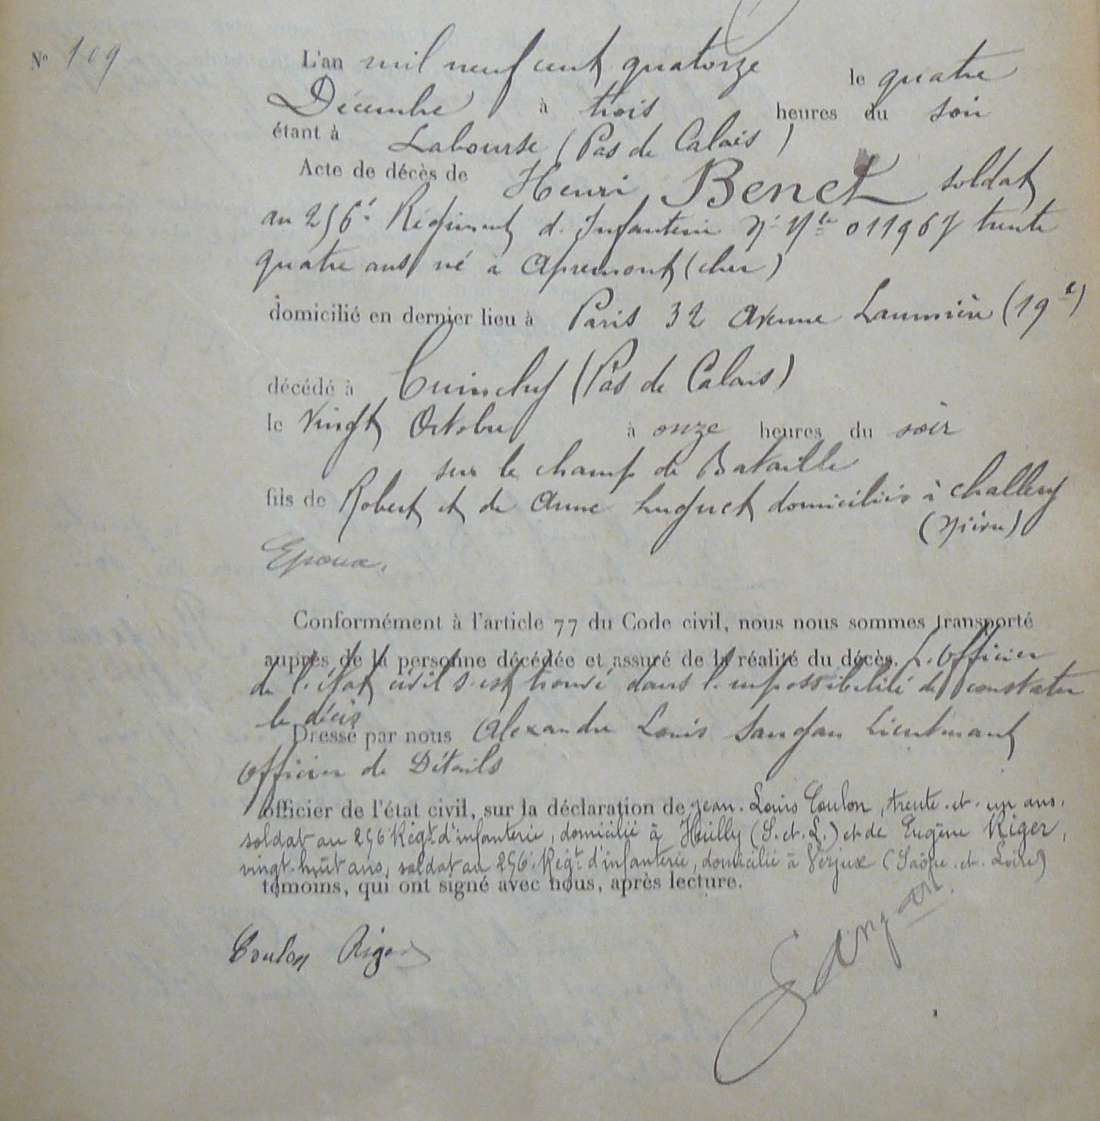 N° 109
L'an mil neuf cent quatorze le quatre
Décembre à trois heures du soir
étant à Labourse (Pas de Calais)
Acte de décès de Henri Benet soldat
au 256e Régiment d'Infanterie N° Mle 011967 trente
quatre ans né à Apremont (cher)
domicilié en dernier lieu à Paris 32 Avenue Laumière (19e)
décédé à Cuinchy (Pas de Calais)
le vingt Octobre à onze heures du soir
sur le champ de Bataille
fils de Robert et de Anne Huguet domiciliés à Challuy
(Nièvre)
Epoux.
Conformément à l'article 77 du Code civil, nous nous sommes transporté
auprès de la personne décédée et assuré de la réalité du décès. L'Officier
de l'état civil s'est trouvé dans l'impossibilité de constater
le décès
Dressé par nous Alexandre Louis Sangan Lieutenant
Officier de Détails
officier de l'état civil, sur la déclaration de Jean-Louis Coulon, trente-et-un ans,
soldat au 256e Régt d'infanterie, domicilié à Huilly (S.et.L.) et de Eugène Riger,
vingt-huit ans, soldat au 256e Régt d'infanterie, domicilié à Verjux (Saône-et-Loire)
témoins, qui ont signé avec nous, après lecture.
Coulon Riger
Sangan